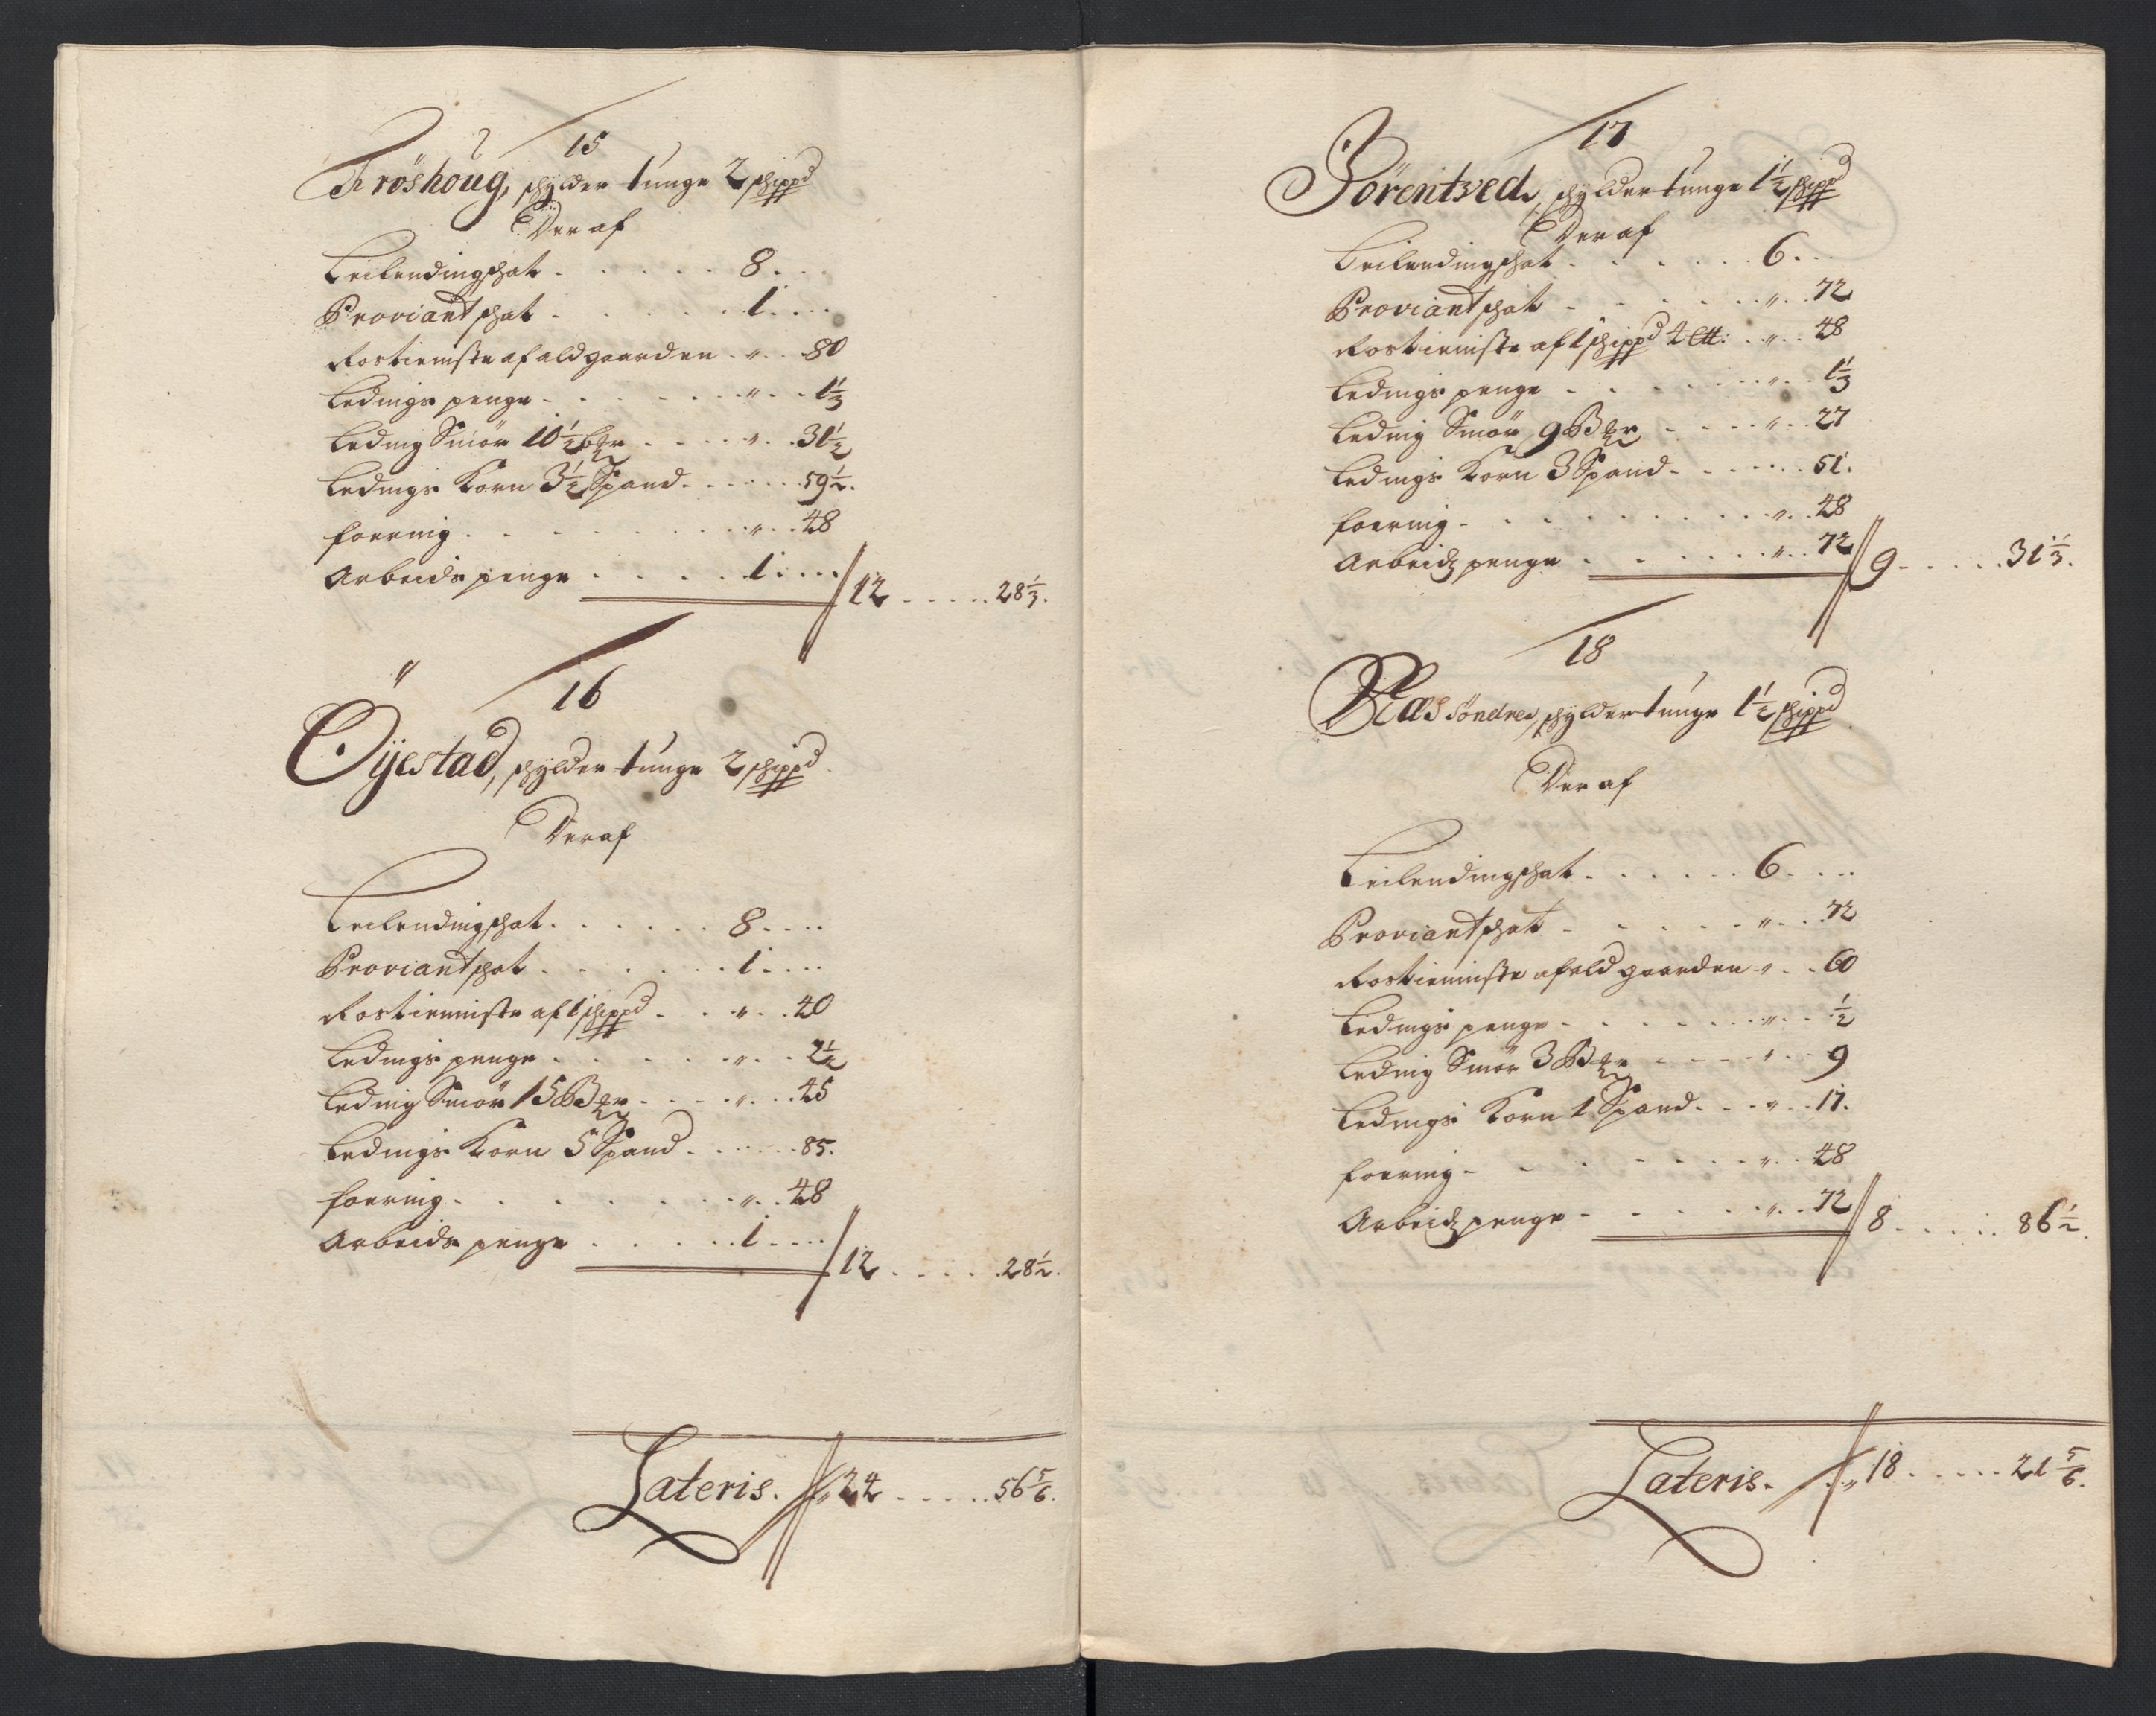 15
Fröshoug, schylder tunge 2 schippd
Der af
Leilendingschat . . . . . 8 . . .
Proviantschat . . . . . 1 . . .
Rostienniste af ald gaarden . " . . 80
Ledings penge . . . . . " . . 1⅓
Leding Smör 10½ bzr . . . . " . . 31½
Ledings Korn 3½ Spand . . . . . 59½.
foering . . . . . . " . . 48
Arbeids penge . . . . 1 . . . 12 . . . . . 28⅓.
16
Öÿestad, schylder tunge 2 schippd
Der af
Leilendingschat . . . . . 8 . . .
Proviantschat . . . . . 1 . . .
Rostienniste af 1 schippd . . " . . 40
Ledings penge . . . . . " . . 2½
Leding Smör 15 Bzr . . . . " . . 45
Ledings Korn 5 Spand . . . . . 85.
foering . . . . . . " . . 48
Arbeids penge . . . . . 1 . . . 12 . . . . . 28½.
Lateris. " 24 . . . . . 56⅚.
17
Börentved, schylder tunge 1½ schippd
Der af
Leilendingschat . . . . . 6 . . .
Proviantschat . . . . . " . . 72
Rostienniste af 1 schippd 4 Lt: . " . . 48
Ledings penge . . . . . " . . 1⅓
Leding Smör 9 Bzr . . . . " . . 27
Ledings Korn 3 Spand . . . . . 51.
foering . . . . . . " . . 48
Arbeidz penge . . . . . " . . 72 9 . . . . . 31⅓.
18
Næs söndre, schylder tunge 1½ schippd
Der af
Leilendingschat . . . . . 6 . . .
Proviantschat . . . . . " . . 72
Rostienniste af ald gaarden . " . . 60
Ledings penge . . . . . " . . ½
Leding Smör 3 Bzr . . . . " . . 9
Ledings Korn 1 Spand . . . " . . 17.
foering . . . . . . " . . 48
Arbeidz penge . . . . . " . . 72 8 . . . . . 86½.
Lateris. " 18 . . . . . 21⅚.